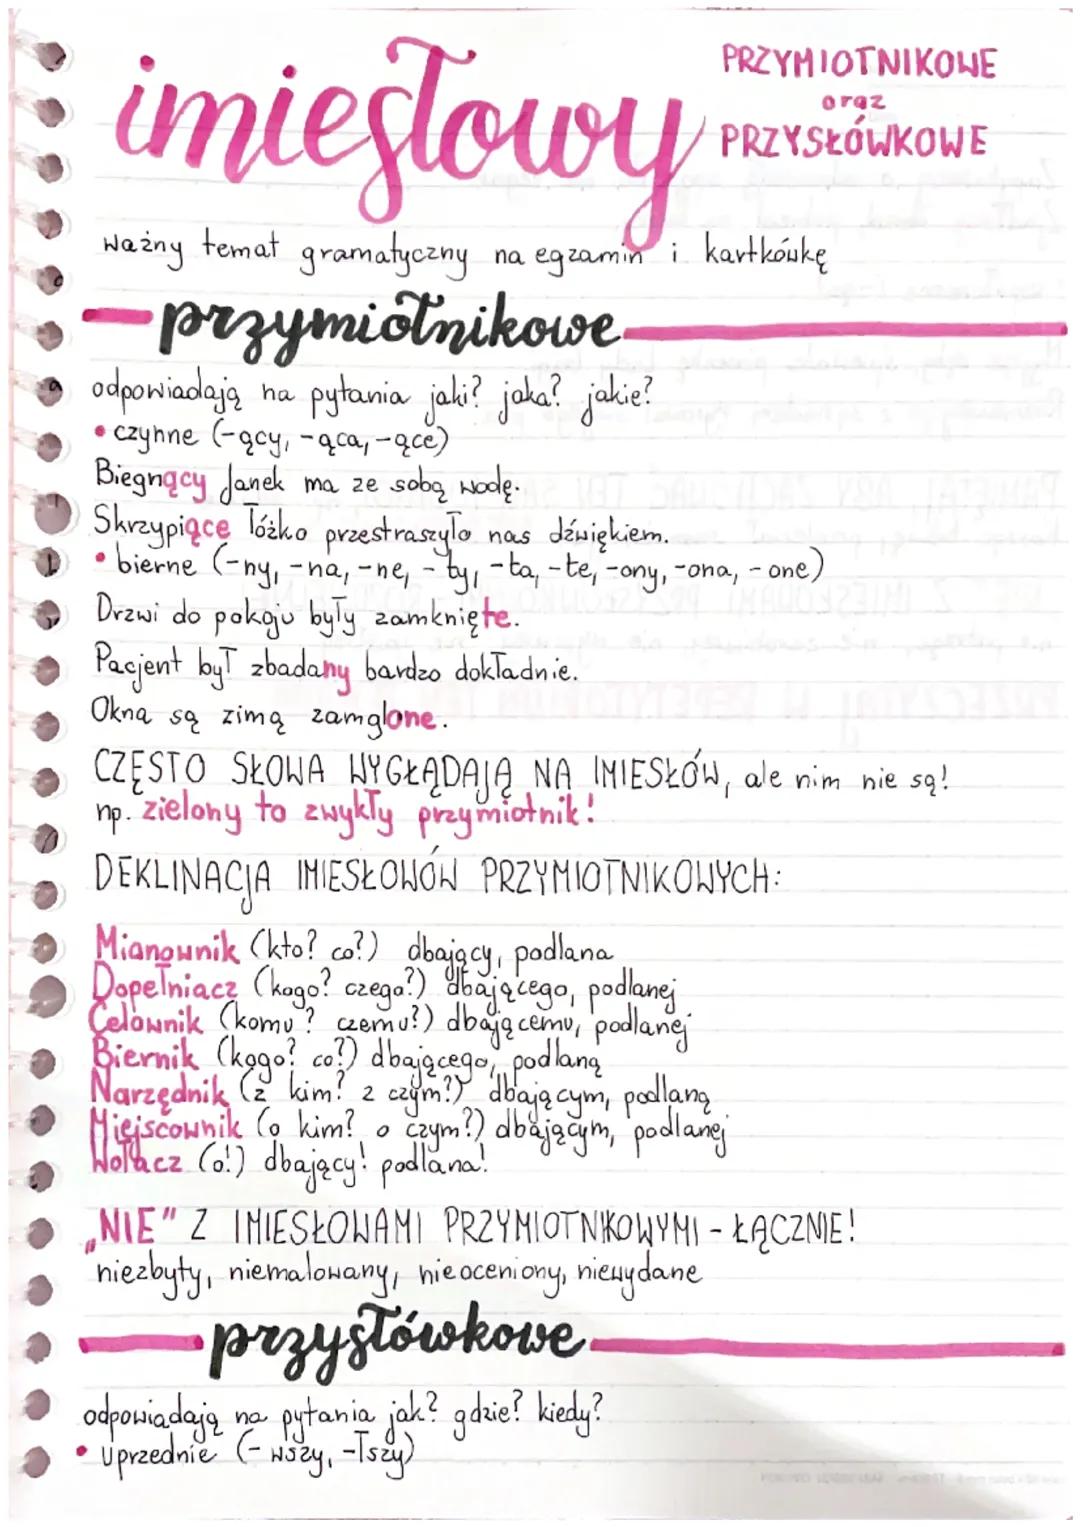 imiesłowy
PRZYMIOTNIKOWE
oraz
PRZYSŁÓWKOWE
ważny temat gramatyczny na egzamin i kartkówkę
przymiotnikowe
odpowiadają na pytania jaki? jaka? jakie?
• czynne (-ący, -ąca, -ące)
Biegnący Janek ma ze sobą wodę.
Skrzypiące łóżko przestraszyło nas dźwiękiem.
• bierne (-ny, -na, -ne, -ty, -ta, -te, -ony, -ona, -one)
Drzwi do pokoju były zamknięte.
Pacjent był zbadany bardzo dokładnie.
Okna są zimą zamglone.
CZĘSTO SŁOWA WYGŁĄDAJĄ NA IMIESŁÓW, ale nim nie są!
np. zielony to zwykły przymiotnik!
DEKLINACJA IMIESŁOWÓW PRZYMIOTNIKOWYCH:
Mianownik (kto? co?) dbający, podlana
Dopełniacz (kogo? czego?) dbającego, podlanej
Celownik (komu? czemu?) dbającemu, podlanej
Biernik (kogo? co?) dbającego, podlaną
Narzędnik (z kim? z czym?) dbającym, podlaną
Miejscownik (o kim? o czym?) dbającym, podlanej
Wołacz (o!) dbający! podlana!
„NIE" Z IMIESŁOWAMI PRZYMIOTNIKOWYMI - ŁĄCZNIE!
niezbyty, niemalowany, nieoceniony, niewydane
przysłówkowe
odpowiadają na pytania jak? gdzie? kiedy?
• uprzednie (-wszy, -łszy)